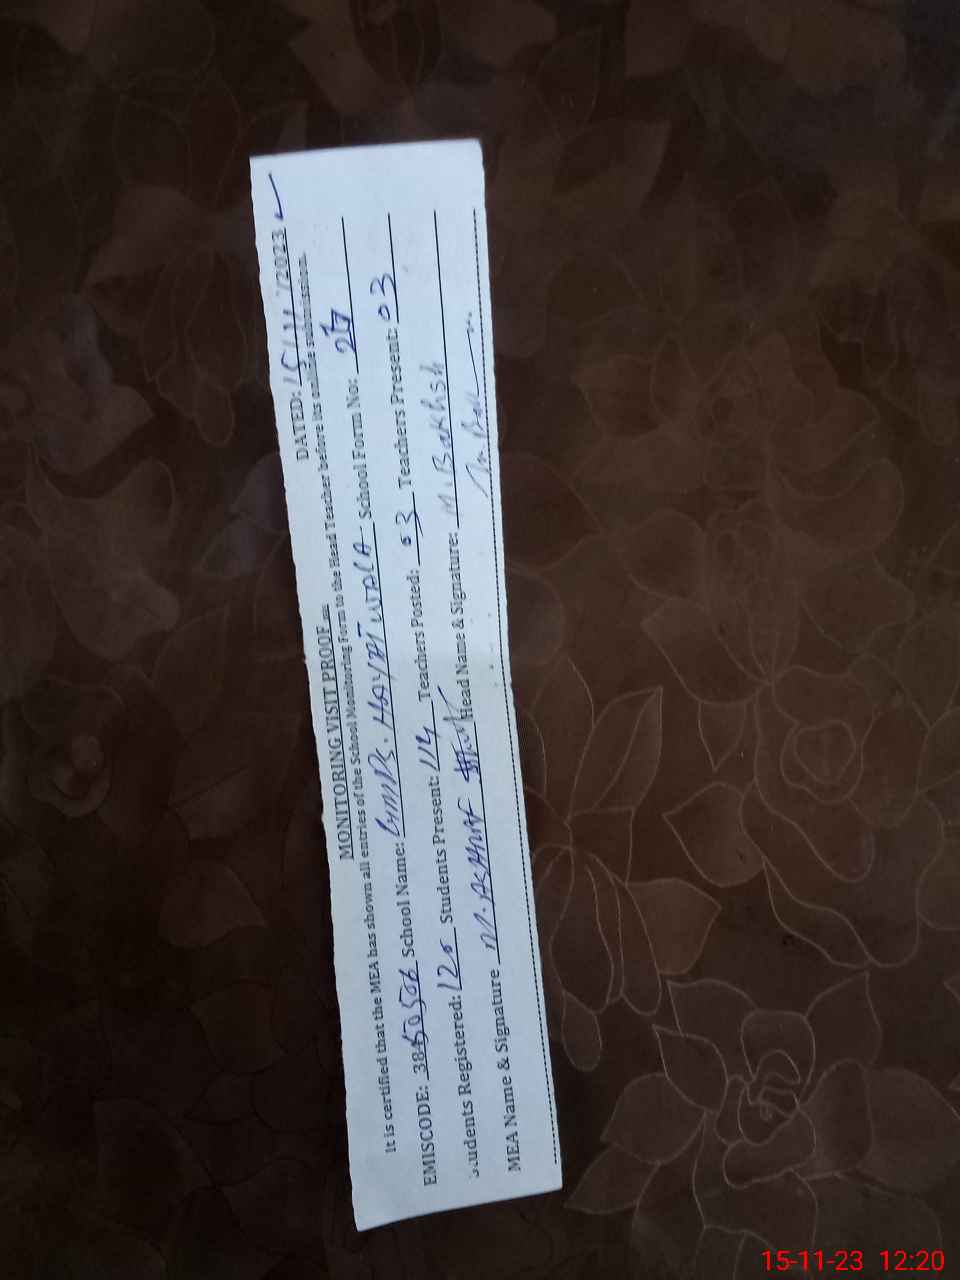 MONITORING VISIT PROOF DATED: 15/11/2023
It is certified that the MEA has shown all entries of the School Monitoring Form to the Head Teacher before its online submission.
EMISCODE: 38450506 School Name: GMPS. HAYAT WALA School Form No: 27
Students Registered: 120 Students Present: 114 Teachers Posted: 03 Teachers Present: 03
MEA Name & Signature M. ASHRAF Head Name & Signature: M. Bakhsh
15-11-23 12:20